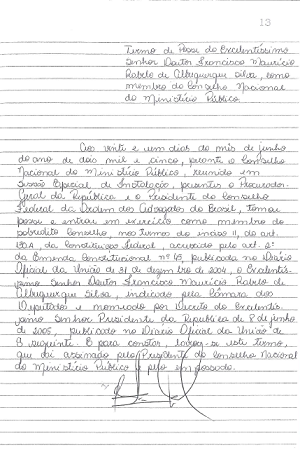 13
Termo de Posse do Excelentíssimo
Senhor Doutor Francisco Maurício
Rabelo de Albuquerque Silva, como
membro do Conselho Nacional
do Ministério Público.
Aos vinte e um dias do mês de junho
do ano de dois mil e cinco, perante o Conselho
Nacional do Ministério Público, reunido em
Sessão Especial de Instalação, presentes o Procurador-
Geral da República e o Presidente do Conselho
Federal da Ordem dos Advogados do Brasil, tomou
posse e entrou em exercício como membro do
sobredito Conselho, nos termos do inciso II, do art.
130A, da Constituição Federal, acrescido pelo art. 2º
da Emenda Constitucional nº 45, publicada no Diário
Oficial da União de 31 de dezembro de 2004, o Excelentís-
simo Senhor Doutor Francisco Maurício Rabelo de
Albuquerque Silva, indicado pela Câmara dos
Deputados e nomeado por Decreto do Excelentís-
simo Senhor Presidente da República de 8 de junho
de 2005, publicado no Diário Oficial da União de
9 seguinte. E para constar, lavrou-se este termo,
que vai assinado pelo Presidente do Conselho Nacional
do Ministério Público e pelo empossado.